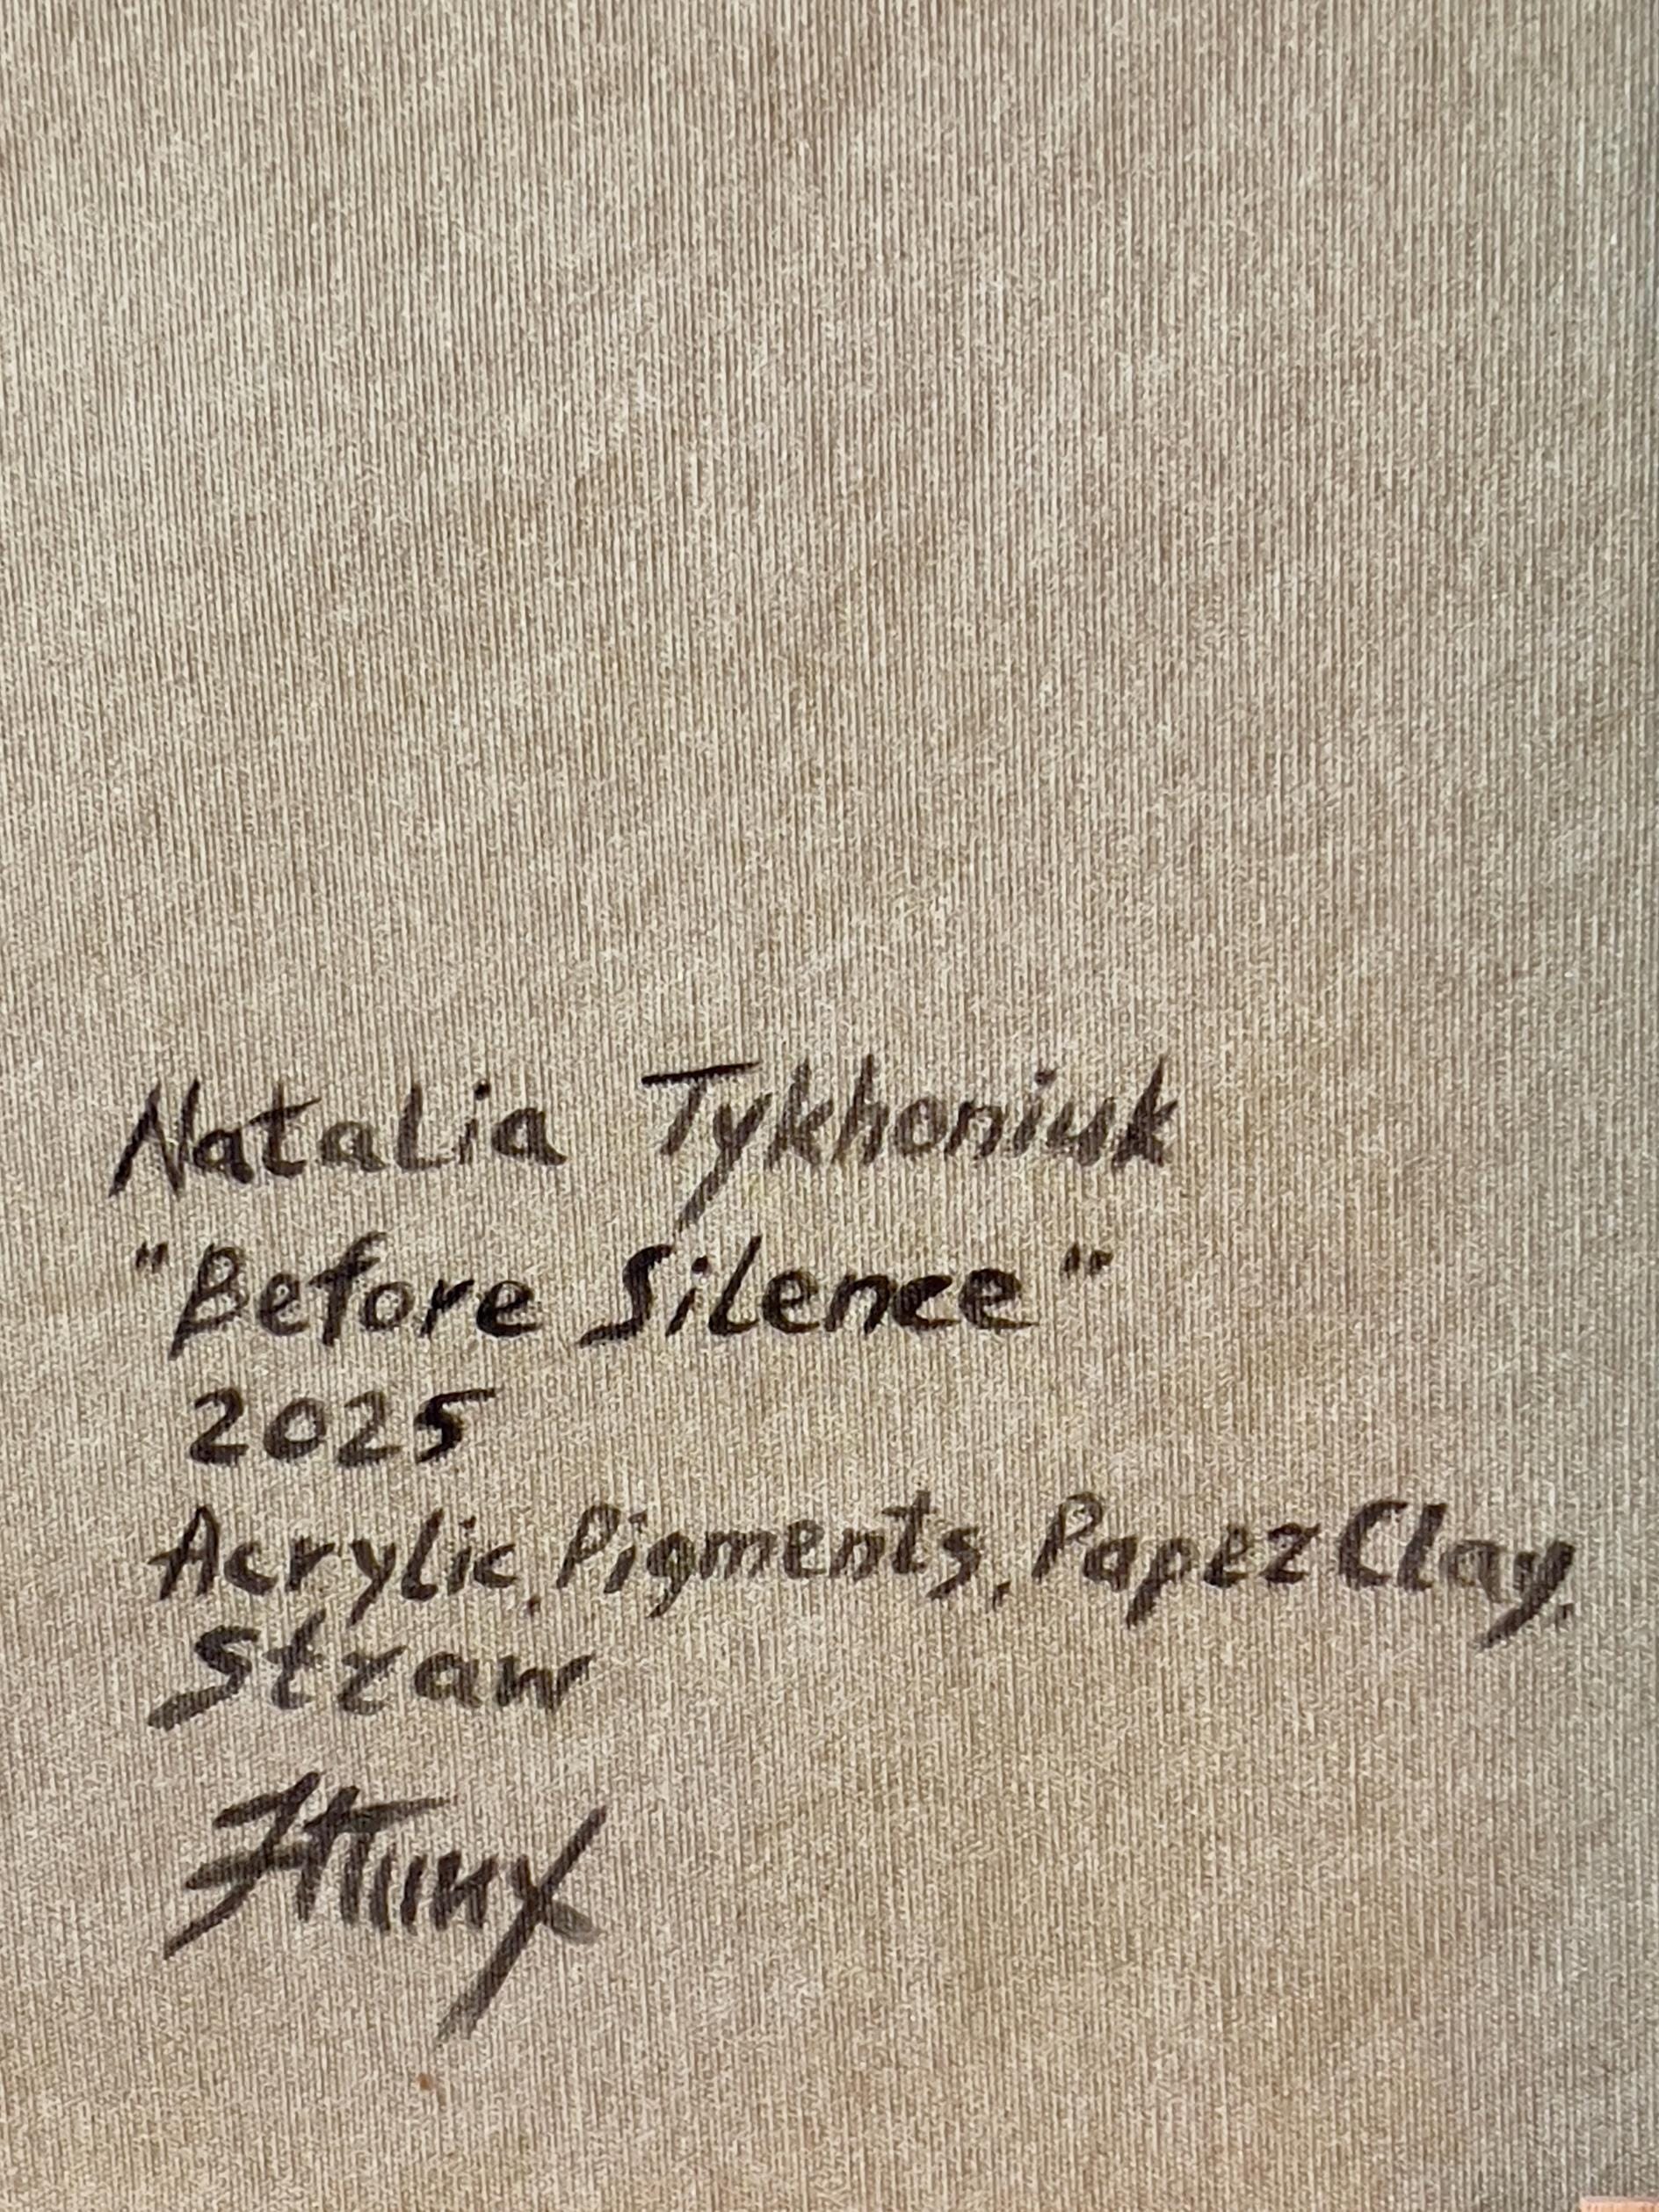 Natalia Tykhoniuk
"Before Silence"
2025
Acrylic, Pigments, Paper Clay,
Straw